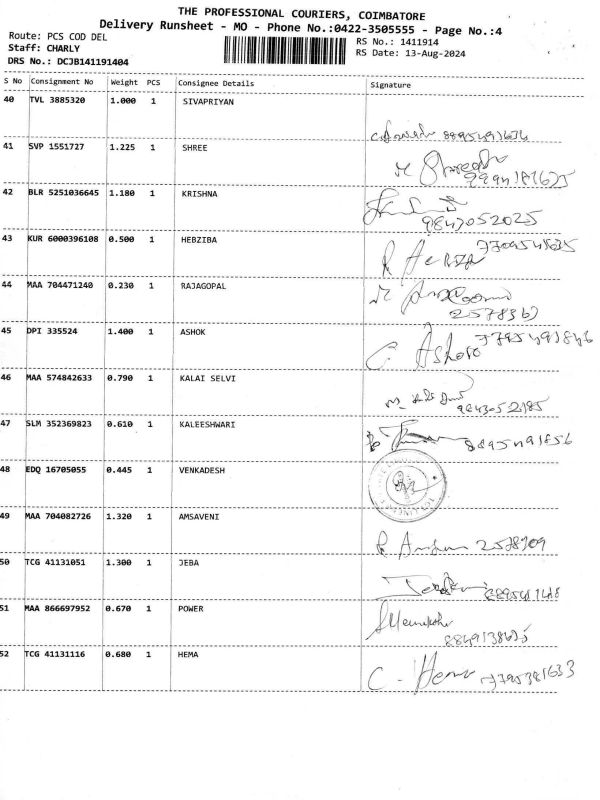 THE PROFESSIONAL COURIERS, COIMBATORE
Delivery Runsheet - MO - Phone No.:0422-3505555 - Page No.:4
Route: PCS COD DEL
Staff: CHARLY
DRS No.: DCJB141191404
RS No.: 1411914
RS Date: 13-Aug-2024
S No Consignment No Weight PCS Consignee Details Signature
40 TVL 3885320 1.000 1 SIVAPRIYAN
8895491636
41 SVP 1551727 1.225 1 SHREE
9994187635
42 BLR 5251036645 1.180 1 KRISHNA
9843052025
43 KUR 6000396108 0.500 1 HEBZIBA
44 MAA 704471240 0.230 1 RAJAGOPAL
45 DPI 335524 1.400 1 ASHOK
C. Ashok 7795491846
46 MAA 574842633 0.790 1 KALAI SELVI
9843052185
47 SLM 352369823 0.610 1 KALEESHWARI
8895491856
48 EDQ 16705055 0.445 1 VENKADESH
49 MAA 704082726 1.320 1 AMSAVENI
50 TCG 41131051 1.300 1 JEBA
51 MAA 866697952 0.670 1 POWER
52 TCG 41131116 0.680 1 HEMA
C. Hema 7795381633